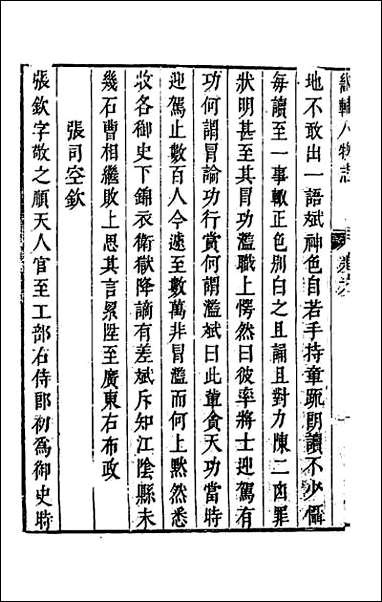 畿輔人物志
地不敢出一語斌神色自若手持章疏朗讀不少懾
每讀至一事輙正色別白之且誦且對力陳二凶罪
狀明甚至其冒功濫職上愕然曰彼率將士迎駕有
功何謂冒論功行賞何謂濫斌曰此輩貪天功當時
迎駕止數百人今遽至數萬非冒濫而何上默然悉
收各御史下錦衣衛獄降謫有差斌斥知江陰縣未
幾石曹相繼敗上思其言累陞至廣東右布政
張司空欽
張欽字敬之順天人官至工部右侍郎初為御史時